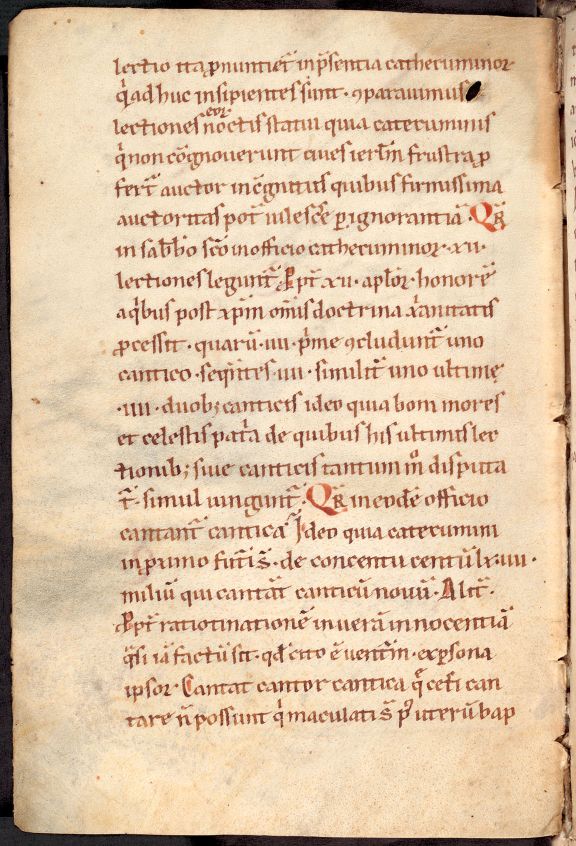 lectio ita ꝓnuntiet᷑ in p̄sentia cathecuminoꝝ
q̇ adhuc insipientes sunt · ꝯparauimus
lectiones noctis statui quia catecuminis
eoꝝ
q̇ non cōgnouerunt ciues ierl̄m frustra ꝓ
fert᷑ auctor incēgnitus quibus firmissima
auctoritas pot᷑ uilescẹ̄ ꝑ ignorantiā · QR̄
in sabb̄o sc̄o in officio cathecuminoꝝ · xii ·
lectiones legunt᷑ Ꝓpt᷑ xii · apl̄oꝝ · honorē
a q̇bus post xp̄m om̄is doctrina xp̄ianitatis
ꝓcessit · quarū · iiii · p̄me ꝯcludunt᷑ uno
cantico · seq̄ntes · iiii · similit᷑ uno ultimę
· iiii · duob; canticis ideo quia boni mores
et celestis pat̄a de quibus his ultimis lec
tionib; siue canticis tantum m̊ disputa
t᷑ · simul iunguntur᷑ · QR̄ in eodē officio
cantant᷑ cantica᷑ Ideo quia catecumini
in ꝓximo fut᷑i s̄ · de concentu centū lxiiii ·
miliū qui cantāt canticū nouū · Alit᷑ ·
Ꝓpt᷑ ratiotinationē in uerā innocentiā
q̄si iā factū sit · qd̄ cito ē uent᷑m · ex ꝑsona
ipsoꝝ · Cantat cantor cantica q̄ cet᷑i can
tare n̄ possunt q̇ maculati s̄ p᷑ uterū bap